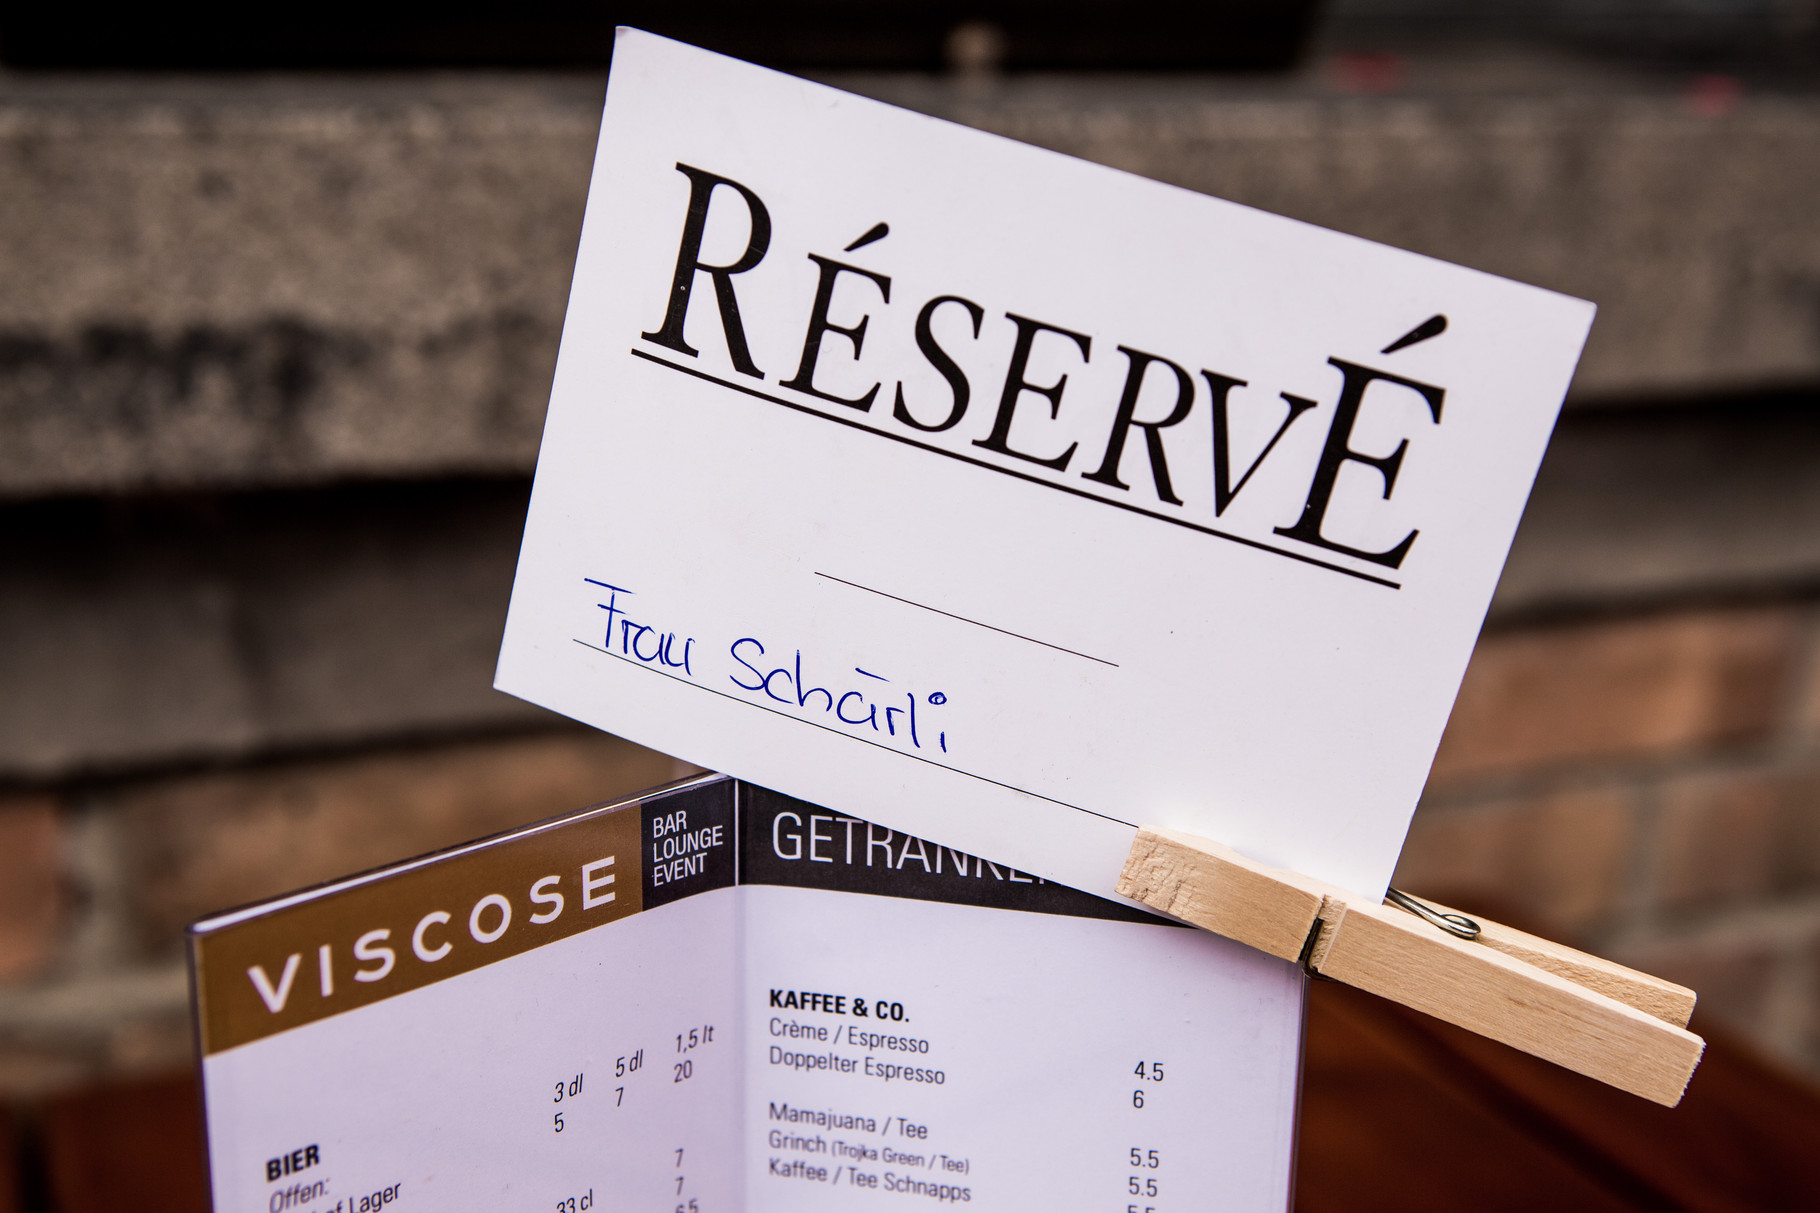 RÉSERVÉ
Frau Schärli
VISCOSE
BAR
LOUNGE
EVENT
3 dl 5 dl 1,5 lt
5 7 20
BIER
Offen:
Lager
33 cl
7
7
6.5
GETRÄNKE
KAFFEE & CO.
Crème / Espresso 4.5
Doppelter Espresso 6
Mamajuana / Tee 5.5
Grinch (Trojka Green / Tee) 5.5
Kaffee / Tee Schnapps 5.5